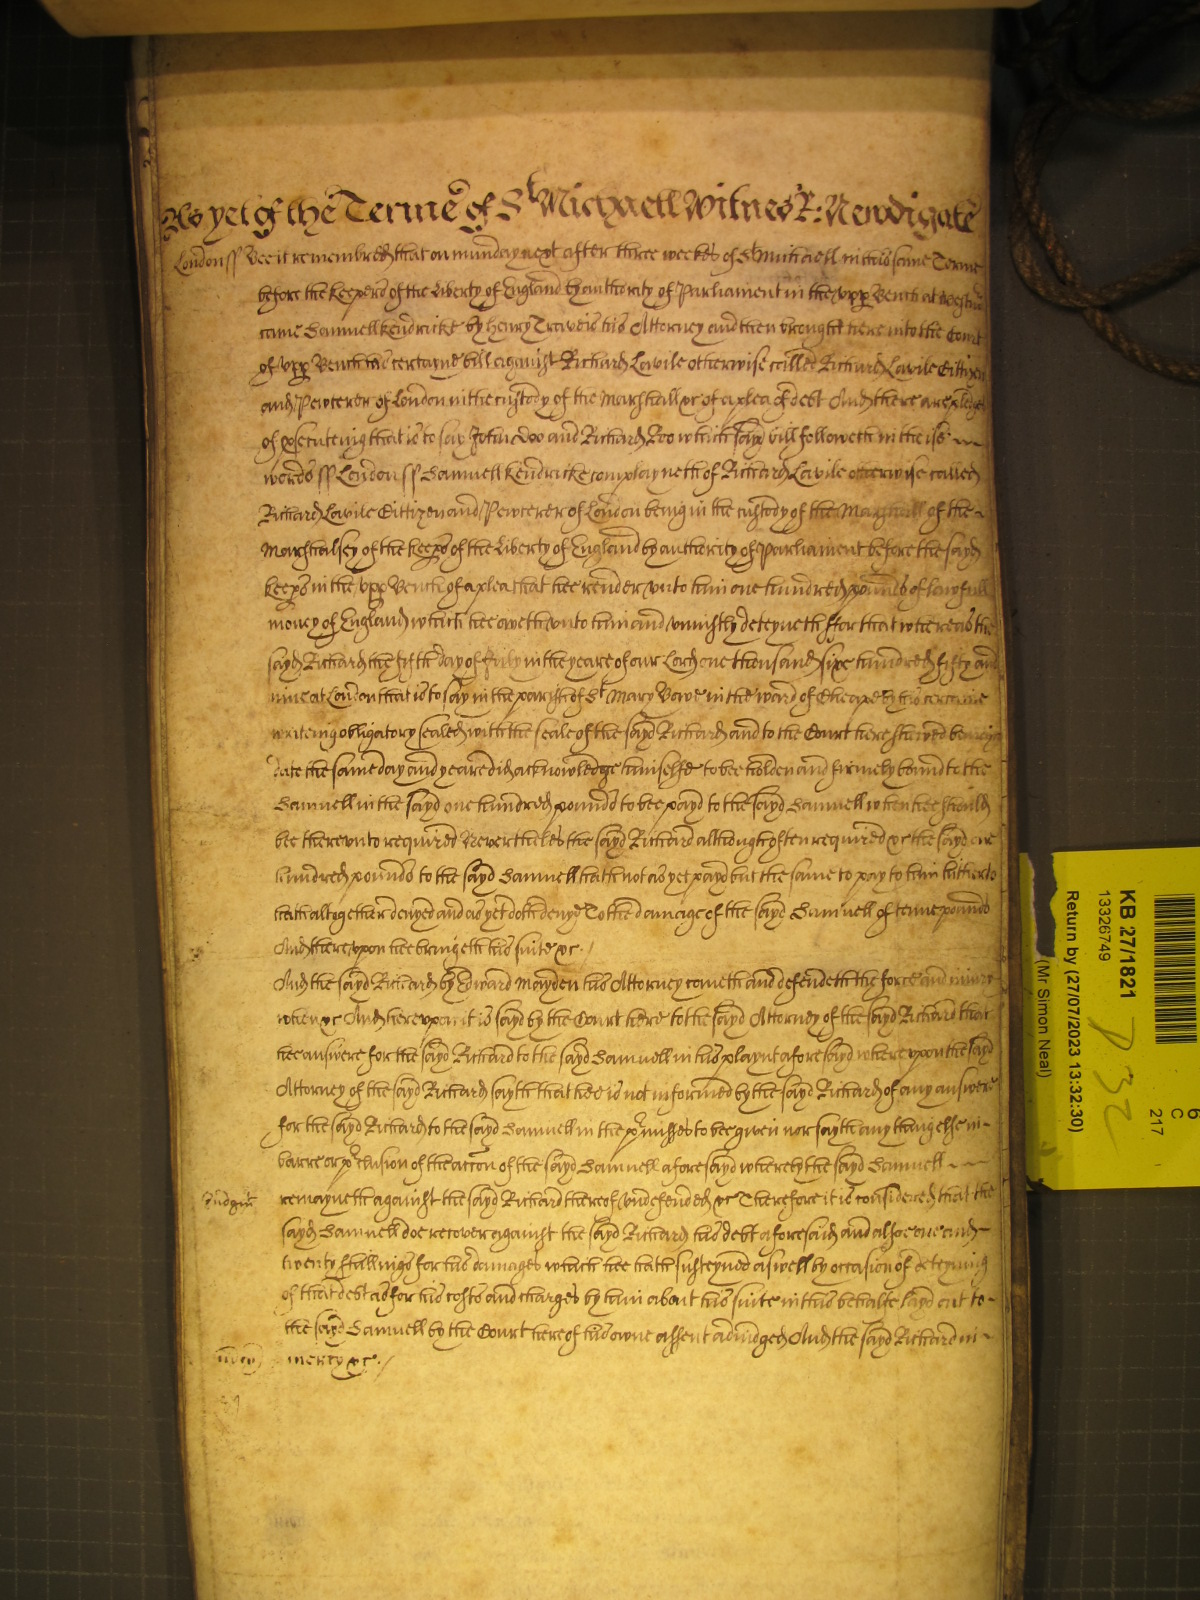 As yet of the Terme of St Michaell Witnes R: Newdigate
London ss Bee it remembred that on munday next after three weekes of St Michaell in this same Terme
before the Keepers of the Liberty of England by authority of Parliament in the upp Bench at Westm
came Samuell Kendricke by Henry Travers his Attorney and then brought here into the Court
of upp Bench his certayne bill against Richard Lavile otherwise called Richard Lavile Cittizen
and Pewterer of London in the custody of the Marshall &c of a plea of debt And there are pledges
of prsecuteing that is to say John Doo and Richard Roo which sayd bill followeth in theise
words ss London ss Samuell Kendricke complayneth of Richard Lavile otherwise called
Richard Lavile Cittizen and Pewterer of London being in the custody of the Marshall of the
Marshalsey of the Keeps of the Liberty of England by authority of Parliament before the sayd
Keeps in the upp Bench of a plea that hee render unto him one hundred pounds of lawfull
money of England which hee oweth unto him and uniustly deteyneth ffor that whereas the
sayd Richard the fifth day of July in the yeare of our Lord one thousand six hundred fifty and
nine at London that is to say in the parish of St Mary Bowe in the ward of Cheape by his certaine
writeing obligatory sealed with the seale of the sayd Richard and to the Court here shewed beareing
date the same day and yeare did acknowledge himselfe to bee holden and firmely bound to the
Samuell in the sayd one hundred pounds to bee payd to the sayd Samuell when hee should
bee thereunto required Nevertheles the sayd Richard although often required &c the sayd one
hundred pounds to the sayd Samuell hath not as yet payd but the same to pay to him hitherto
hath altogether denyed and as yet doth deny To the damage of the sayd Samuell of tenne pounds
And thereupon hee bringeth this suite &c.
And the sayd Richard by Edward Mayden his Attorney cometh and defendeth the force and iniury
when &c And hereupon it is sayd by the Court here to the sayd Attorney of the sayd Richard that
hee answere for the sayd Richard to the sayd Samuell in his playnt aforesayd whereupon the sayd
Attorney of the sayd Richard sayth that hee is not informed by the sayd Richard of any answere
for the sayd Richard to the sayd Samuell in the prmisses to bee given nor sayth any thing else in
barre or prclusion of the accon of the sayd Samuell aforesayd whereby the sayd Samuell
Judgmt remayneth against the sayd Richard thereof undefended &c Therefore it is considered that the
sayd Samuell doe recover against the sayd Richard his debt aforesaid and alsoe one and
twenty shillings for his damages which hee hath susteyned aswell by occasion of deteyning
of that debt as for his costs and charges by him about his suite in this behalfe layd out to
the sayd Samuell by the Court here of his owne assent adiudged And the sayd Richard in
mercy &c.
KB 27/1821
13326749
Return by (27/07/2023 13:32:30)
(Mr Simon Neal)
6
C
217